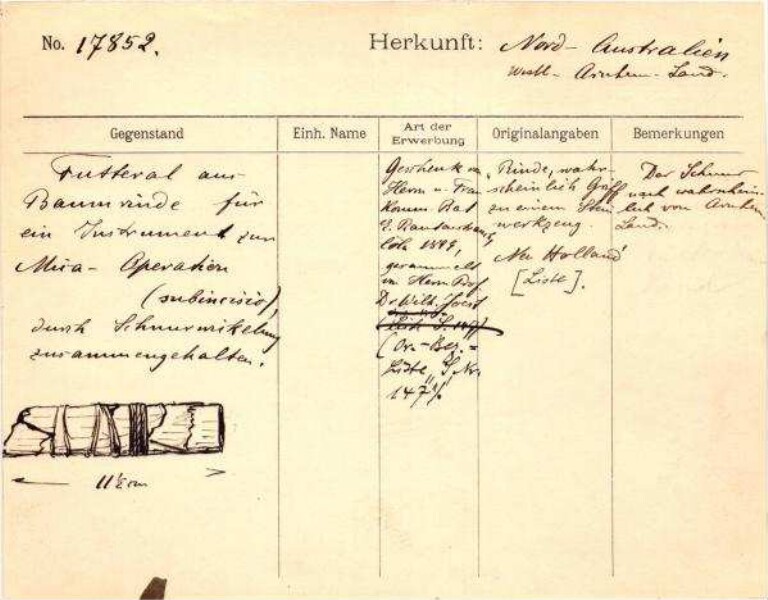 No. 17852.
Herkunft: Nord-Australien
Westl-Arnhem-Land.
Gegenstand
Einh. Name
Art der Erwerbung
Originalangaben
Bemerkungen
Futteral aus
Baumrinde für
ein Instrument zur
Mica-Operation
(subincisio),
durch Schnurwikelung
zusammengehalten.
11½ cm
Geschenk v.
Herrn u. Frau
Komm. Rat
E. Rautenstrauch,
Cöln 1899,
gesammelt
v. Herrn Prof.
Dr. Wilh. Joest
(Or.-Bez. =
Liste, S. Nr.
147
„Rinde, wahr-
scheinlich Griff
zu einem Stein
werkzeug.
Neu Holland"
[Liste].
Der Schnur
nach wahrschein
lich von Arnhem
Land.